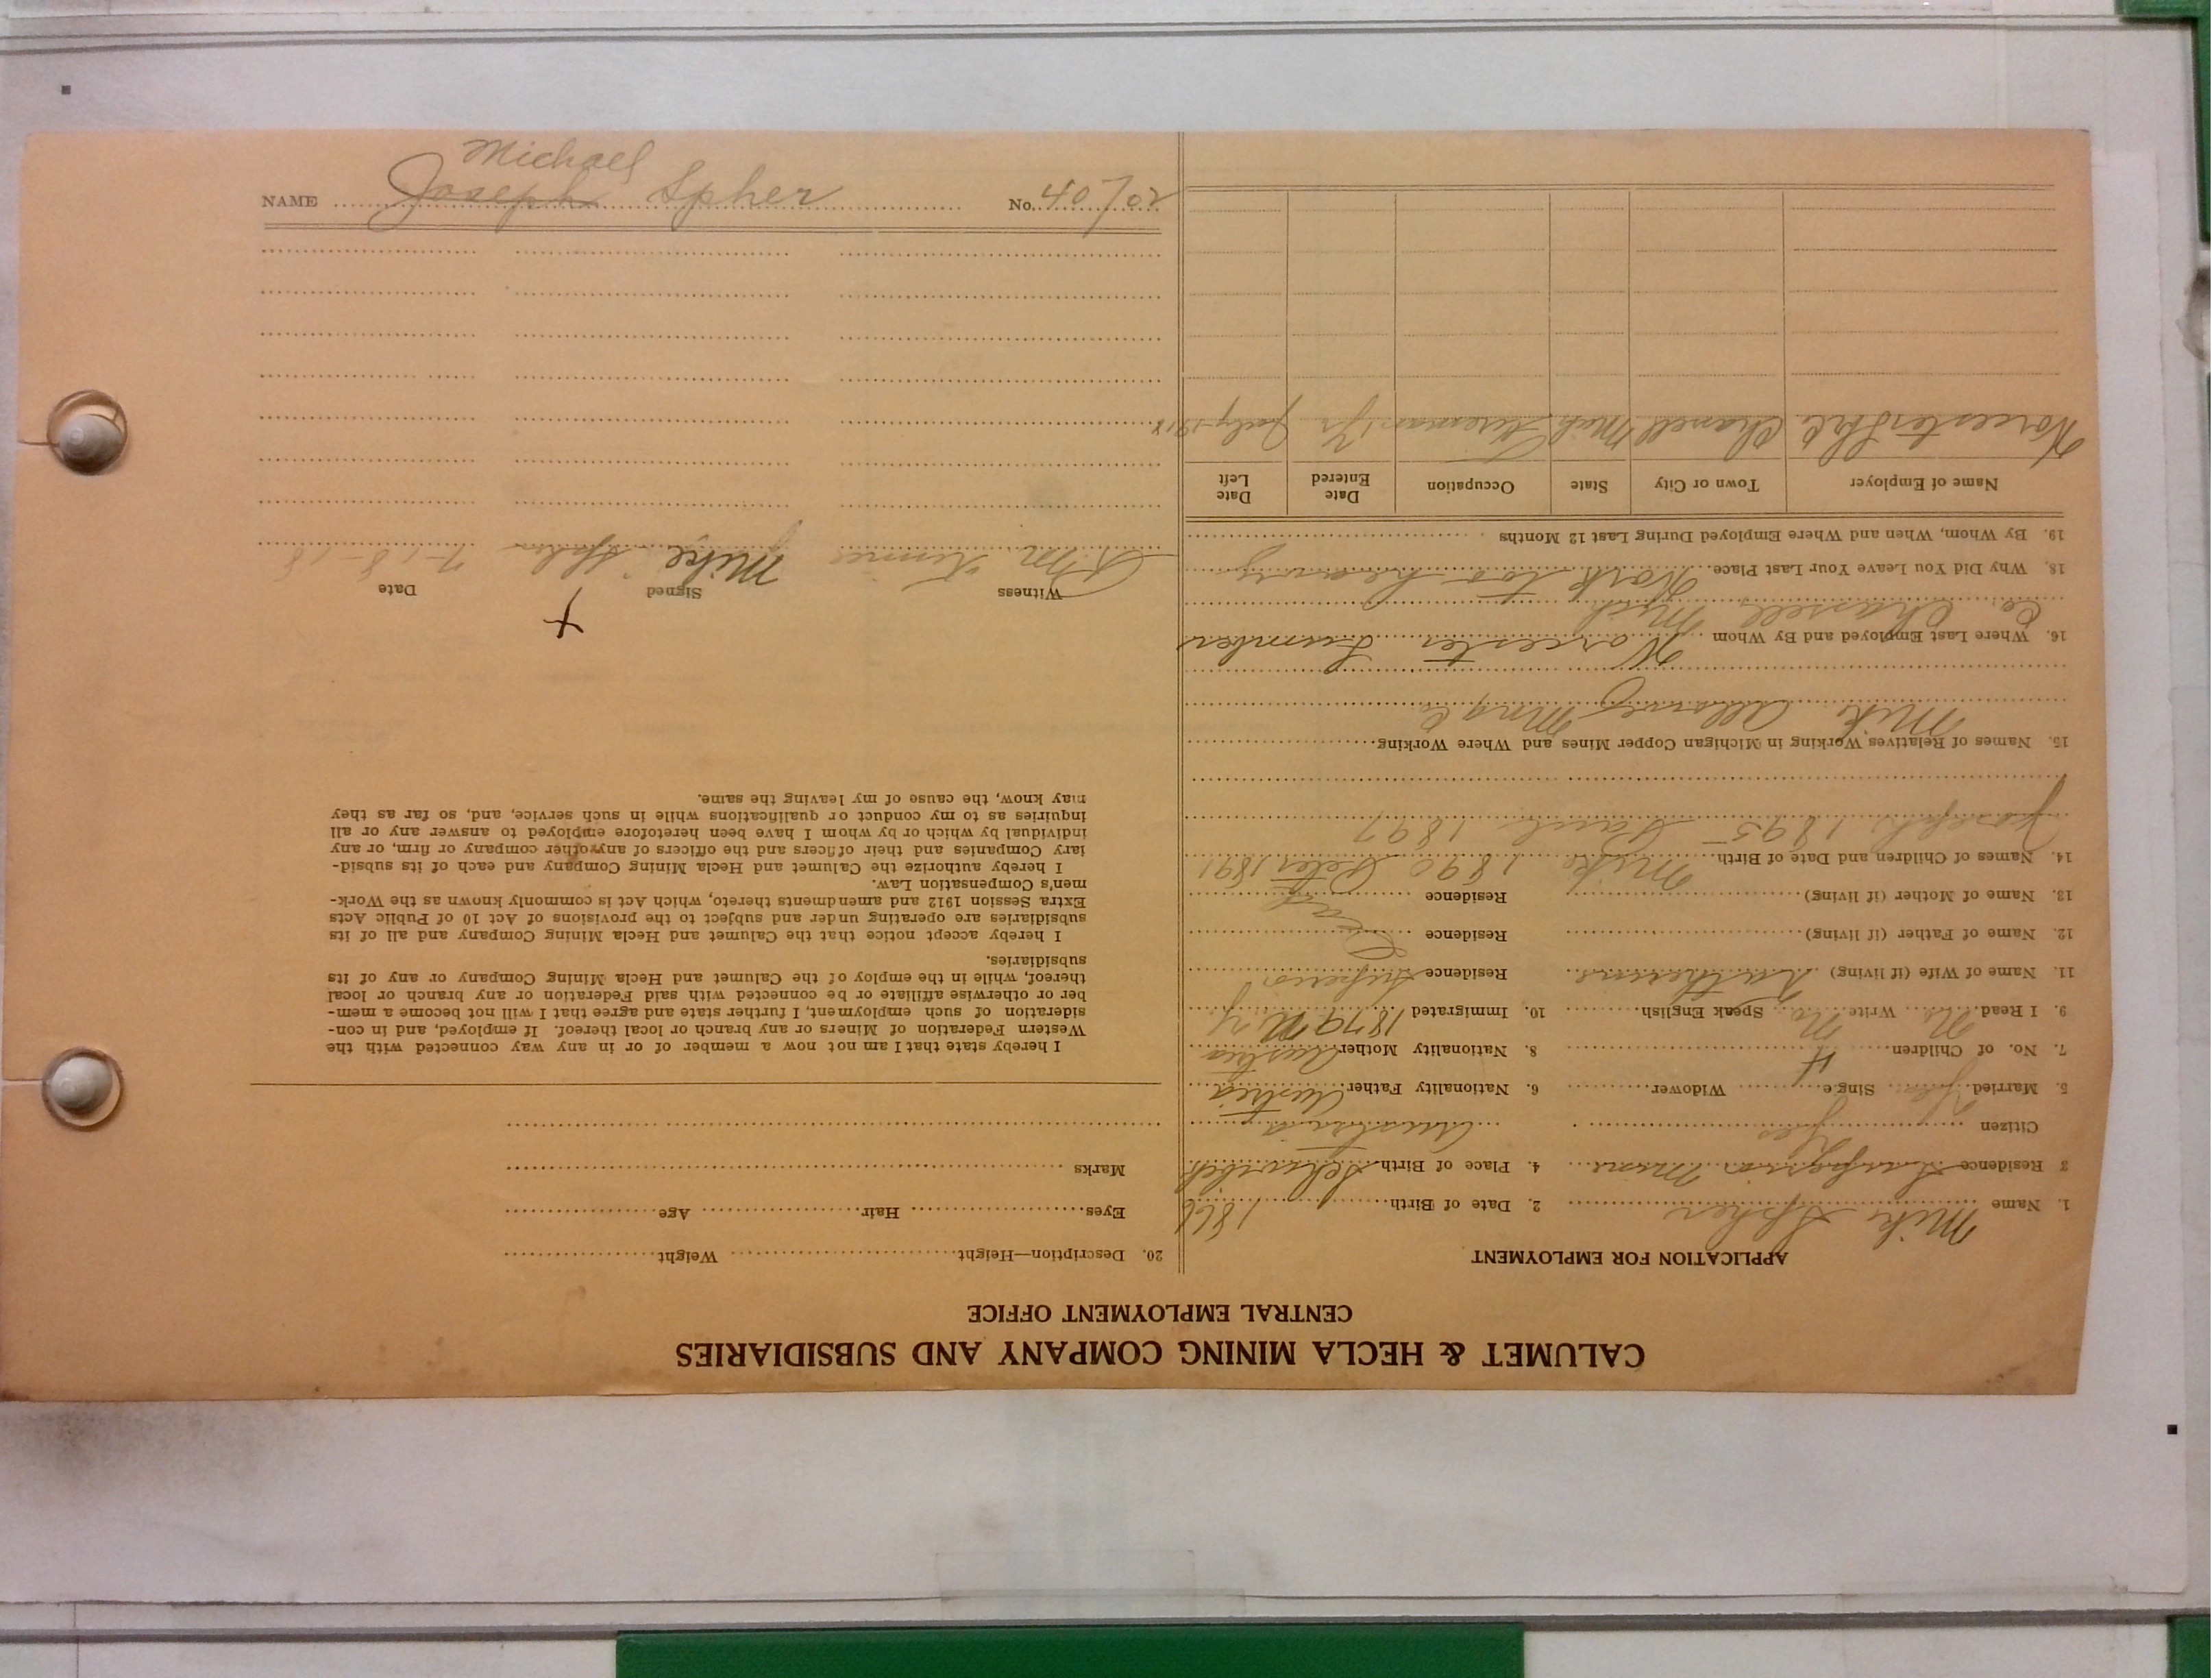 Michael
NAME Joseph Spher No. 40702
CALUMET & HECLA MINING COMPANY AND SUBSIDIARIES
CENTRAL EMPLOYMENT OFFICE
APPLICATION FOR EMPLOYMENT
1. Name Mike Spher 2. Date of Birth 1866
3 Residence Superior Mine 4. Place of Birth
Citizen Yes Austria
5. Married Yes Singe Widower 6. Nationality Father Austria
7. No. of Children 4 8. Nationality Mother Austria
9. I Read No Write No Speak English 10. Immigrated 1879 N Y
11. Name of Wife (if living) Katherine Residence Superior
12. Name of Father (if living) Residence
13. Name of Mother (if living) Residence
14. Names of Children and Date of Birth Mike 1890 Peter 1891
Joseph 1895 Paul 1897
15. Names of Relatives Working in Michigan Copper Mines and Where Working
Mike Allouez Mng Co
16. Where Last Employed and By Whom Worcester Lumber
Co. Chassell Mich
18. Why Did You Leave Your Last Place Work too heavy
19. By Whom, When and Where Employed During Last 12 Months
Name of Employer Town or City State Occupation Date Entered Date Left
Worcester Chassell Mich Fireman 1 yr July 1918
20. Description—Height Weight
Eyes Hair Age
Marks
I hereby state that I am not now a member of or in any way connected with the
Western Federation of Miners or any branch or local thereof. If employed, and in con-
sideration of such employment, I further state and agree that I will not become a mem-
ber or otherwise affiliate or be connected with said Federation or any branch or local
thereof, while in the employ of the Calumet and Hecla Mining Company or any of its
subsidiaries.
I hereby accept notice that the Calumet and Hecla Mining Company and all of its
subsidiaries are operating under and subject to the provisions of Act 10 of Public Acts
Extra Session 1912 and amendments thereto, which Act is commonly known as the Work-
men's Compensation Law.
I hereby authorize the Calumet and Hecla Mining Company and each of its subsid-
iary Companies and their officers and the officers of any other company or firm, or any
individual by which or by whom I have been heretofore employed to answer any or all
inquiries as to my conduct or qualifications while in such service, and, so far as they
may know, the cause of my leaving the same.
X
Witness Signed Date
Mike Spher 7-18-18